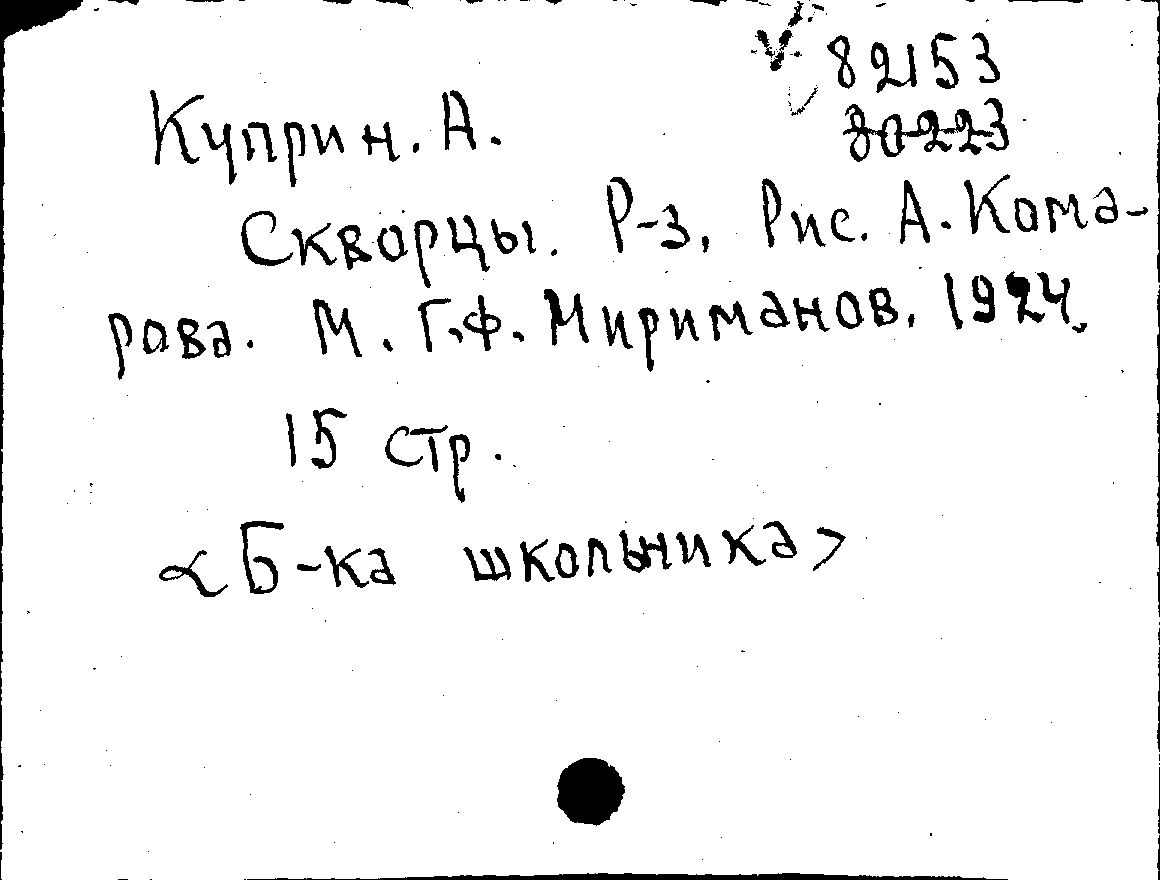 82153
80223
Куприн. А.
Скворцы. Р-з. Рис. А. Кома-
рова. М. Г.Ф. Мириманов. 1924.
15 стр.
<Б-ка школьника>